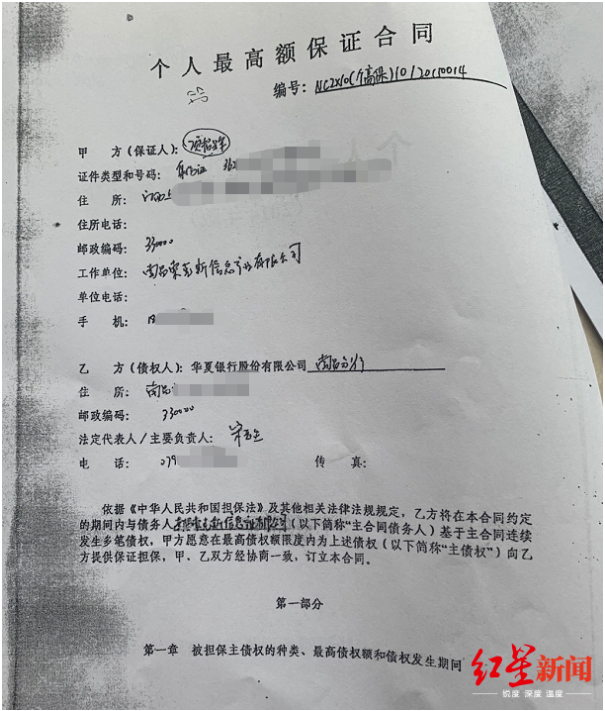 个人最高额保证合同
编号: NC2X10(个高保)10120110014
甲 方(保证人):
证件类型和号码: 身份证 362
住 所: 江西
住所电话:
邮政编码: 33000
工作单位: 南昌 信息产业有限公司
单位电话:
手 机:
乙 方(债权人): 华夏银行股份有限公司 南昌分行
住 所: 南昌
邮政编码: 330000
法定代表人/主要负责人:
电 话: 079 传 真:
依据《中华人民共和国担保法》及其他相关法律法规规定,乙方将在本合同约定
的期间内与债务人 信息产业有限公司(以下简称“主合同债务人)基于主合同连续
发生多笔债权,甲方愿意在最高债权额限度内为上述债权(以下简称“主债权”)向乙
方提供保证担保,甲、乙双方经协商一致,订立本合同。
第一部分
第一章 被担保主债权的种类、最高债权额和债权发生期间
红星新闻
锐度 深度 温度